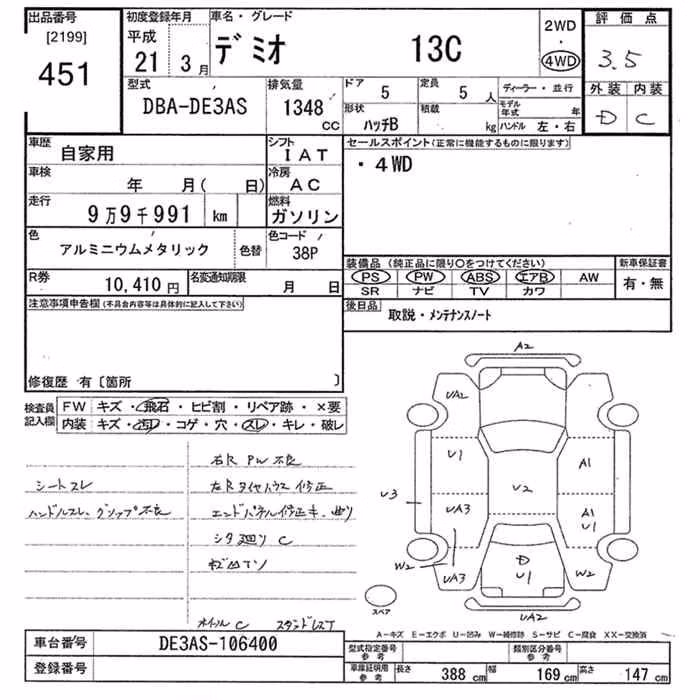 出品番号 初度登録年月 車名・グレード 2WD 評価点
[2199] 平成 デミオ 13C ・ 3.5
451 21 3月 4WD
型式 排気量 ドア 5 定員 5人 ディーラー・並行 外装 内装
DBA-DE3AS 1348 cc 形状 ハッチB 積載 kg モデル年式 年 D C
ハンドル 左・右
車歴 自家用 シフト IAT セールスポイント(正常に機能するものに限ります)
車検 年 月( 日) 冷房 AC ・4WD
走行 9万9千991 km 燃料 ガソリン
色 アルミニウムメタリック 色替 色コード 38P
装備品(純正品に限り○をつけてください) 新車保証書
PS PW ABS エアB AW 有・無
SR ナビ TV カワ
R券 10,410円 名変通知期限 月 日
注意事項申告欄(不具合内容等は具体的に記入して下さい) 後日品 取説・メンテナンスノート
修復歴 有〔箇所 〕
検査員記入欄 FW キズ・飛石・ヒビ割・リペア跡・×要
内装 キズ・汚れ・コゲ・穴・スレ・キレ・破レ
右R PW 不良
シートスレ 左Rタイヤハウス修正
ハンドルスレ、 不良 エンドパネル修正キ、曲り
シタ廻り C
ホイルC
A2
UA2
U1 A1
U3 U2
UA3 A1
U1
W2 D
UA3 U1 W2
UA2
スペア
A-キズ E-エクボ U-凹み W-補修跡 S-サビ C-腐食 XX-交換済
車台番号 DE3AS-106400 型式指定番号 参考 類別区分番号 参考
登録番号 車庫証明用 参考 長さ 388 cm 幅 169 cm 高さ 147 cm